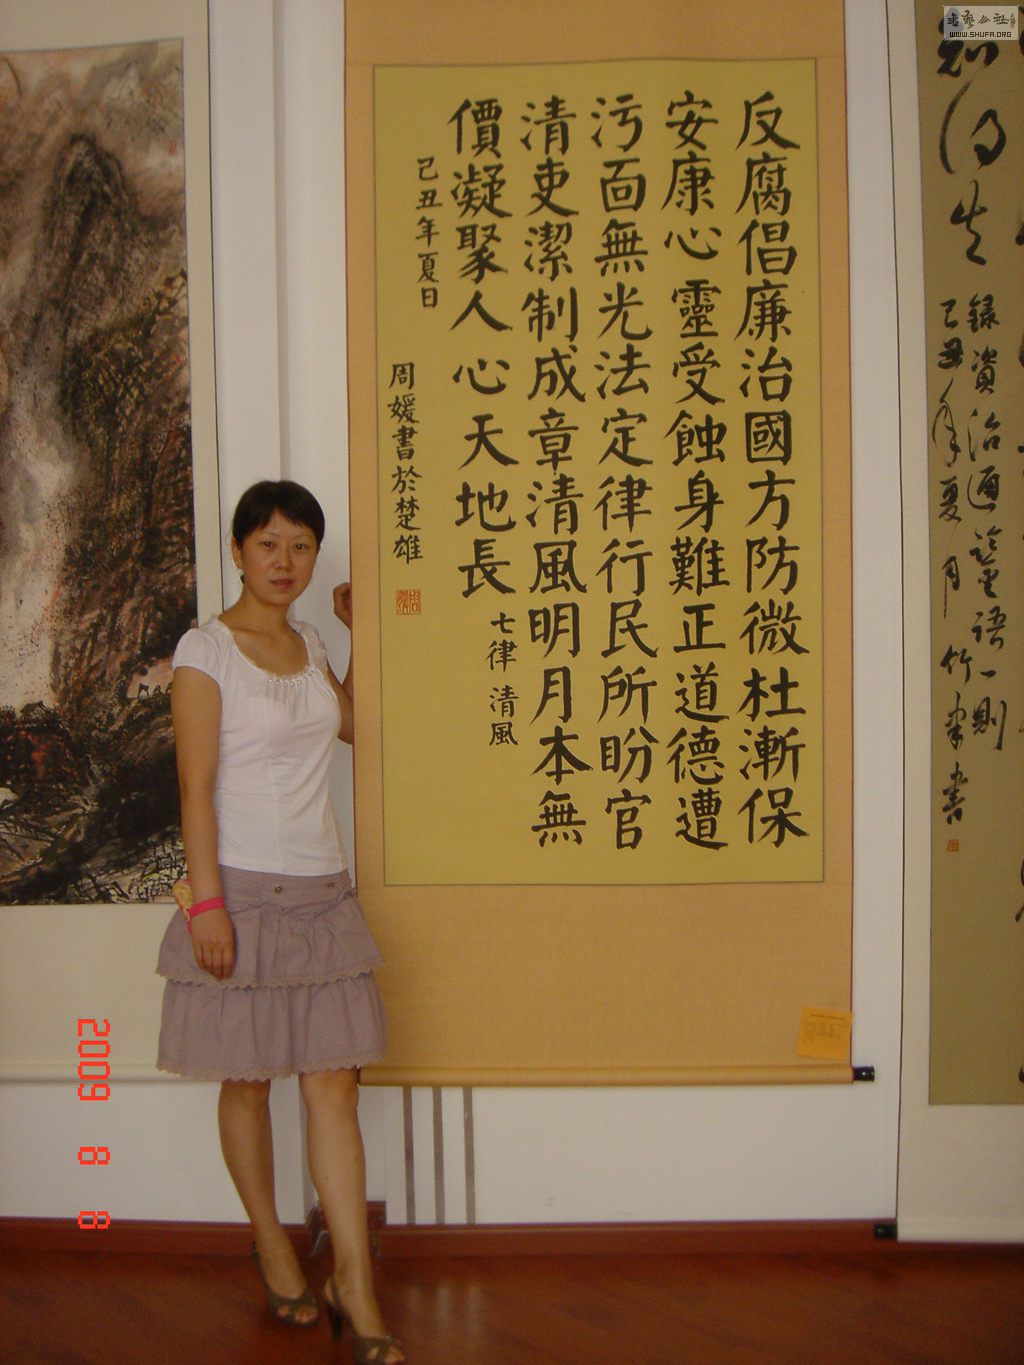 反腐倡廉治國方防微杜漸保
安康心靈受蝕身難正道德遭
污面無光法定律行民所盼官
清吏潔制成章清風明月本無
價凝聚人心天地長
七律 清風
己丑年夏日
周媛書於楚雄
錄資治通鑒語一則
己丑年夏月竹
書
WWW.SHUFA.ORG
2009 8 8